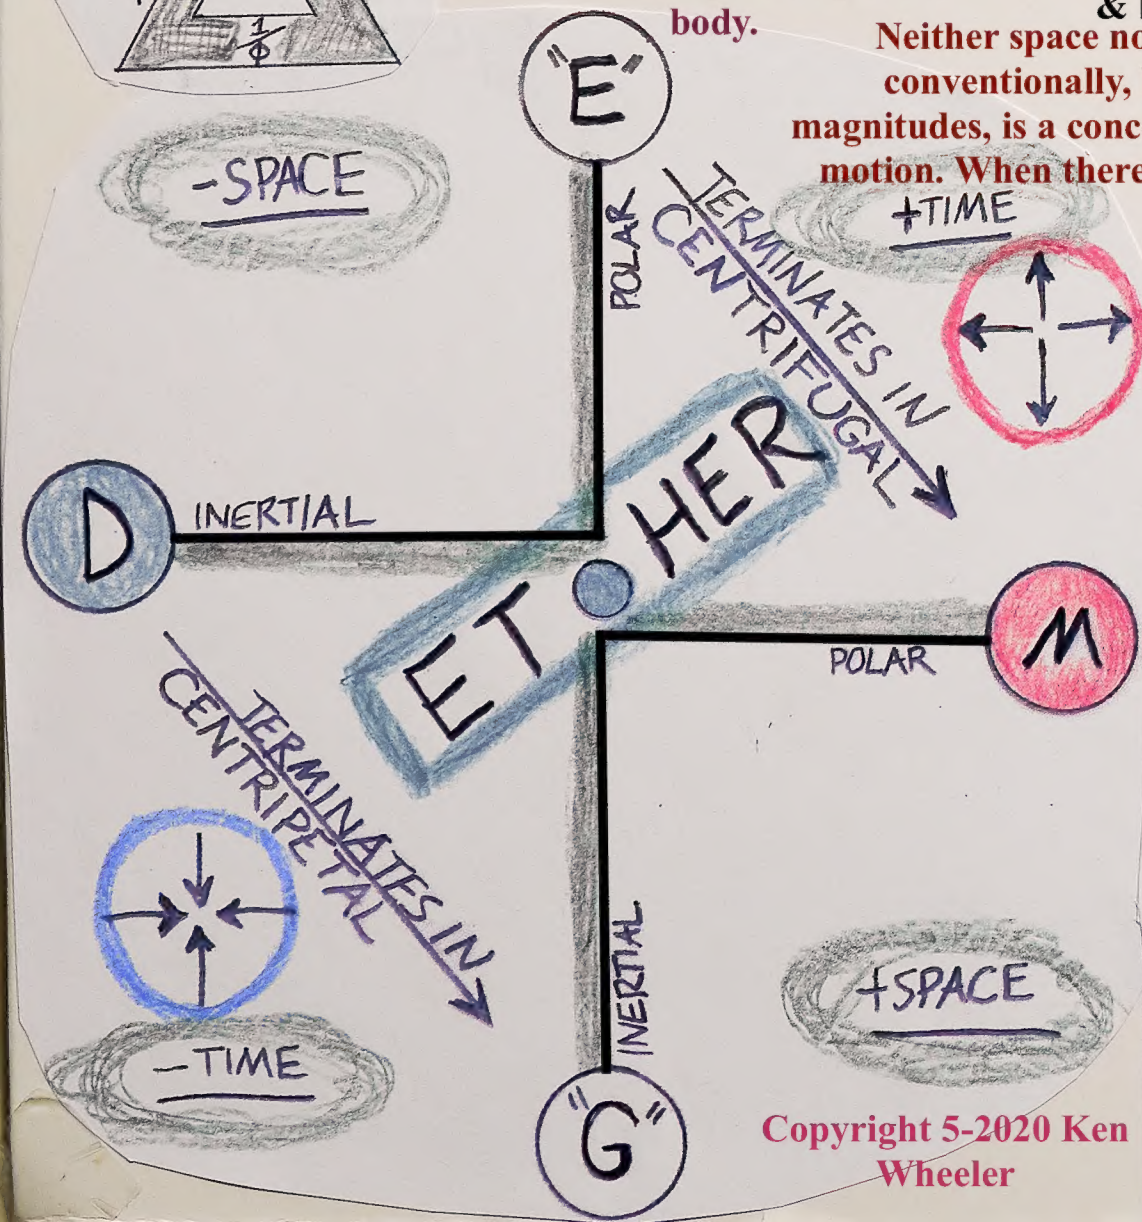 1/Φ
body.
&
Neither space no
conventionally,
magnitudes, is a conc
motion. When there
"E"
-SPACE
+TIME
POLAR
TERMINATES IN
CENTRIFUGAL
D
INERTIAL
ETHER
M
POLAR
TERMINATES IN
CENTRIPETAL
INERTIAL
+SPACE
-TIME
"G"
Copyright 5-2020 Ken
Wheeler